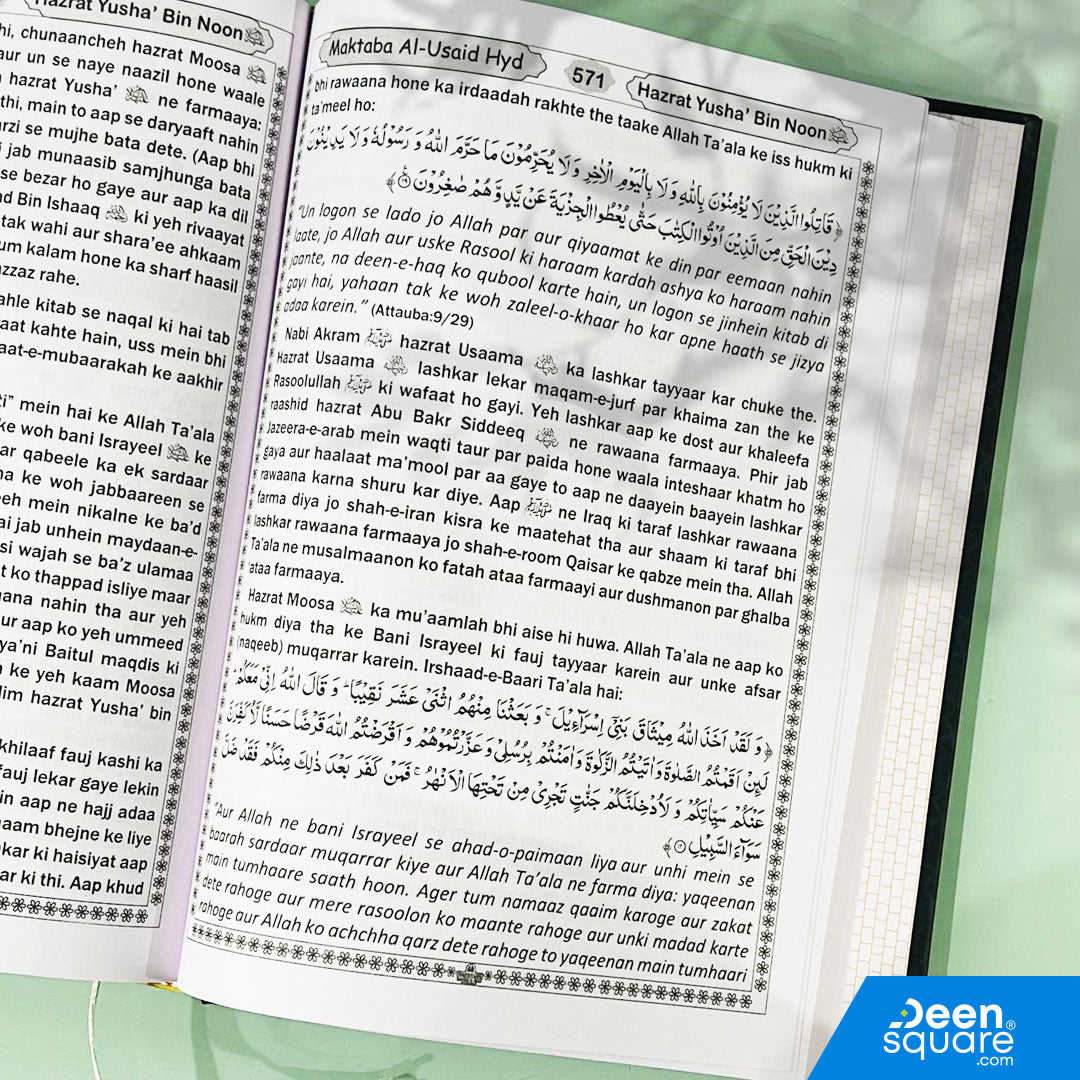 Hazrat Yusha' Bin Noon
hi, chunaancheh hazrat Moosa
aur un se naye naazil hone waale
hazrat Yusha' ne farmaaya:
thi, main to aap se daryaaft nahin
arzi se mujhe bata dete. (Aap bhi
jab munaasib samjhunga bata
se bezar ho gaye aur aap ka dil
Bin Ishaaq ki yeh rivaayat
tak wahi aur shara'ee ahkaam
um kalam hone ka sharf haasil
azzaz rahe.
ahle kitab se naqal ki hai tab
aat kahte hain, uss mein bhi
aat-e-mubaarakah ke aakhir
ti" mein hai ke Allah Ta'ala
ke woh bani Israyeel ke
ar qabeele ka ek sardaar
na ke woh jabbaareen se
eeh mein nikalne ke ba'd
ai jab unhein maydaan-e-
si wajah se ba'z ulamaa
t ko thappad isliye maar
aana nahin tha aur yeh
ur aap ko yeh ummeed
ya'ni Baitul maqdis ki
ke yeh kaam Moosa
lim hazrat Yusha' bin
khilaaf fauj kashi ka
fauj lekar gaye lekin
in aap ne hajj adaa
naam bhejne ke liye
kar ki haisiyat aap
ar ki thi. Aap khud
Maktaba Al-Usaid Hyd
571
Hazrat Yusha' Bin Noon
bhi rawaana hone ka irdaadah rakhte the taake Allah Ta'ala ke iss hukm ki
ta'meel ho:
﴿ قَاتِلُوا الَّذِيْنَ لَا يُؤْمِنُوْنَ بِاللّٰهِ وَ لَا بِالْيَوْمِ الْاٰخِرِ وَ لَا يُحَرِّمُوْنَ مَا حَرَّمَ اللّٰهُ وَ رَسُوْلُهٗ وَ لَا يَدِيْنُوْنَ
دِيْنَ الْحَقِّ مِنَ الَّذِيْنَ اُوْتُوا الْكِتٰبَ حَتّٰى يُعْطُوا الْجِزْيَةَ عَنْ يَّدٍ وَّ هُمْ صٰغِرُوْنَ ﴾
"Un logon se lado jo Allah par aur qiyaamat ke din par eemaan nahin
laate, jo Allah aur uske Rasool ki haraam kardah ashya ko haraam nahin
jaante, na deen-e-haq ko qubool karte hain, un logon se jinhein kitab di
gayi hai, yahaan tak ke woh zaleel-o-khaar ho kar apne haath se jizya
adaa karein." (Attauba:9/29)
Nabi Akram ﷺ hazrat Usaama ka lashkar tayyaar kar chuke the.
Hazrat Usaama lashkar lekar maqam-e-jurf par khaima zan the ke
Rasoolullah ﷺ ki wafaat ho gayi. Yeh lashkar aap ke dost aur khaleefa
raashid hazrat Abu Bakr Siddeeq ne rawaana farmaaya. Phir jab
Jazeera-e-arab mein waqti taur par paida hone waala inteshaar khatm ho
gaya aur haalaat ma'mool par aa gaye to aap ne daayein baayein lashkar
rawaana karna shuru kar diye. Aap ﷺ ne Iraq ki taraf lashkar rawaana
farma diya jo shah-e-iran kisra ke maatehat tha aur shaam ki taraf bhi
lashkar rawaana farmaaya jo shah-e-room Qaisar ke qabze mein tha. Allah
Ta'ala ne musalmaanon ko fatah ataa farmaayi aur dushmanon par ghalba
ataa farmaaya.
Hazrat Moosa ka mu'aamlah bhi aise hi huwa. Allah Ta'ala ne aap ko
hukm diya tha ke Bani Israyeel ki fauj tayyaar karein aur unke afsar
(naqeeb) muqarrar karein. Irshaad-e-Baari Ta'ala hai:
﴿ وَ لَقَدْ اَخَذَ اللّٰهُ مِيْثَاقَ بَنِيْۤ اِسْرَآءِيْلَ ۚ وَ بَعَثْنَا مِنْهُمُ اثْنَيْ عَشَرَ نَقِيْبًا ؕ وَ قَالَ اللّٰهُ اِنِّيْ مَعَكُمْ ؕ
لَىِٕنْ اَقَمْتُمُ الصَّلٰوةَ وَ اٰتَيْتُمُ الزَّكٰوةَ وَ اٰمَنْتُمْ بِرُسُلِيْ وَ عَزَّرْتُمُوْهُمْ وَ اَقْرَضْتُمُ اللّٰهَ قَرْضًا حَسَنًا لَّاُكَفِّرَنَّ
عَنْكُمْ سَيِّاٰتِكُمْ وَ لَاُدْخِلَنَّكُمْ جَنّٰتٍ تَجْرِيْ مِنْ تَحْتِهَا الْاَنْهٰرُ ۚ فَمَنْ كَفَرَ بَعْدَ ذٰلِكَ مِنْكُمْ فَقَدْ ضَلَّ
سَوَآءَ السَّبِيْلِ ﴾
"Aur Allah ne bani Israyeel se ahad-o-paimaan liya aur unhi mein se
baarah sardaar muqarrar kiye aur Allah Ta'ala ne farma diya: yaqeenan
main tumhaare saath hoon. Ager tum namaaz qaaim karoge aur zakat
dete rahoge aur mere rasoolon ko maante rahoge aur unki madad karte
rahoge aur Allah ko achchha qarz dete rahoge to yaqeenan main tumhaari
Deen
square®
.com